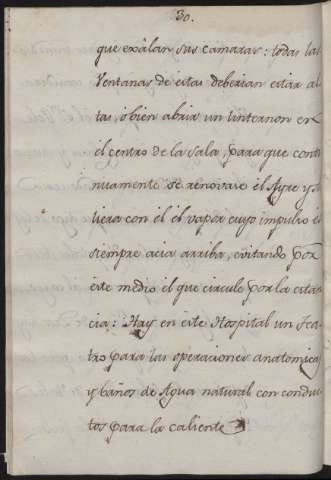 30.
que exâlan sus camaras: todas las
Ventanas de estas deberian estar al
tas, o bien abrir un linternon en
el centro de la sala, para que conti
nuamente se renovase el Ayre y sa
liera con él el vapor cuyo impulso es
siempre acia arriba, evitando por
este medio el que circule por la estan
cia: Hay en este Hospital un Tea
tro para las operaciones anatomicas
y baños de Agua natural con conduc
tos para la caliente